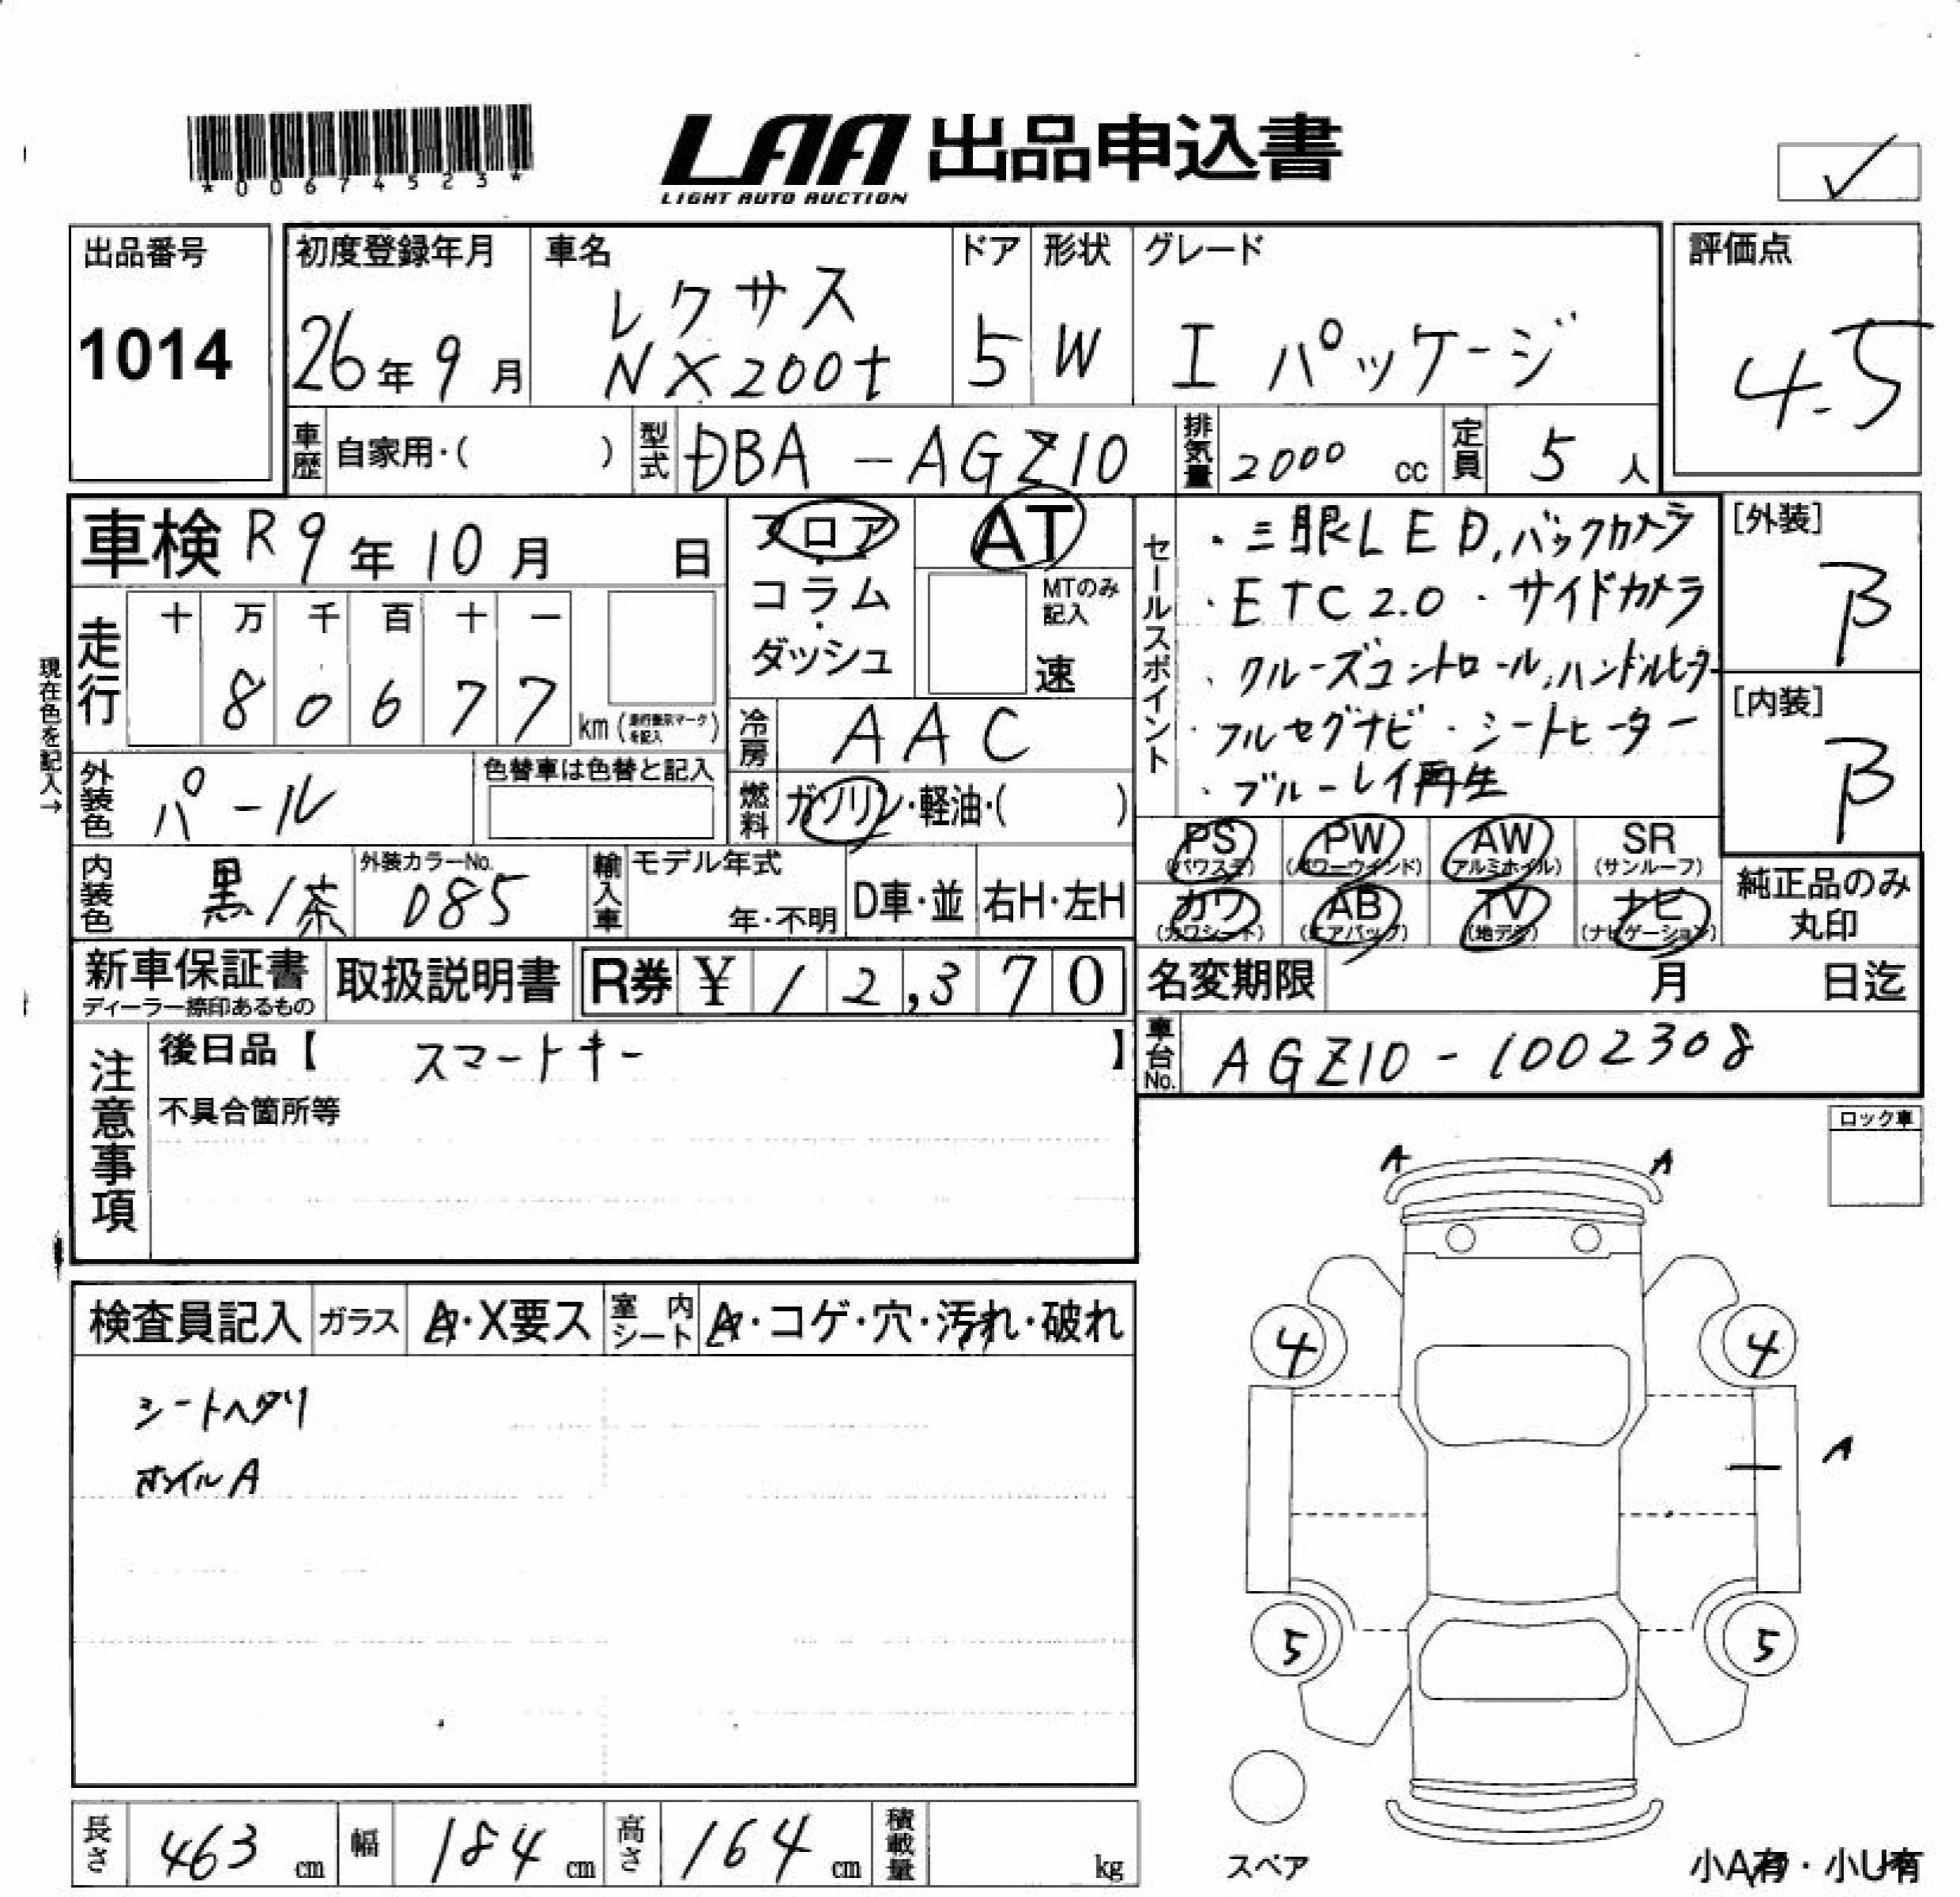 *00674523*
LAA 出品申込書
LIGHT AUTO AUCTION
出品番号
1014
初度登録年月
26年9月
車名
レクサス
NX200t
ドア
5
形状
W
グレード
I パッケージ
評価点
4.5
車歴 自家用・( )
型式 DBA-AGZ10
排気量 2000 cc
定員 5 人
車検 R9年10月 日
フロア
コラム
ダッシュ
AT
MTのみ記入
速
セールスポイント
・三眼LED, バックカメラ
・ETC2.0・サイドカメラ
、クルーズコントロール、ハンドルヒーター
・フルセグナビ・シートヒーター
・ブルーレイ再生
[外装]
B
[内装]
B
現在色を記入→
走行
十 万 千 百 十 一
8 0 6 7 7
km (走行表示マークを記入)
冷房 AAC
燃料 ガソリン・軽油・( )
外装色 パール
色替車は色替と記入
内装色 黒/茶
外装カラーNo.
085
輸入車 モデル年式
年・不明
D車・並
右H・左H
PS (パワステ)
PW (パワーウインド)
AW (アルミホイル)
SR (サンルーフ)
カワ (カワシート)
AB (エアバッグ)
TV (地デジ)
ナビ (ナビゲーション)
純正品のみ
丸印
新車保証書
ディーラー捺印あるもの
取扱説明書
R券 ¥ 12,370
名変期限 月 日迄
車台No. AGZ10-1002308
注意事項
後日品【 スマートキー 】
不具合箇所等
ロック車
A A
検査員記入 ガラス A・X要ス 室内シート A・コゲ・穴・汚れ・破れ
シートヘタリ
ホイルA
4 4
A
5 5
スペア
小A有・小U有
長さ 463 cm 幅 184 cm 高さ 164 cm 積載量 kg